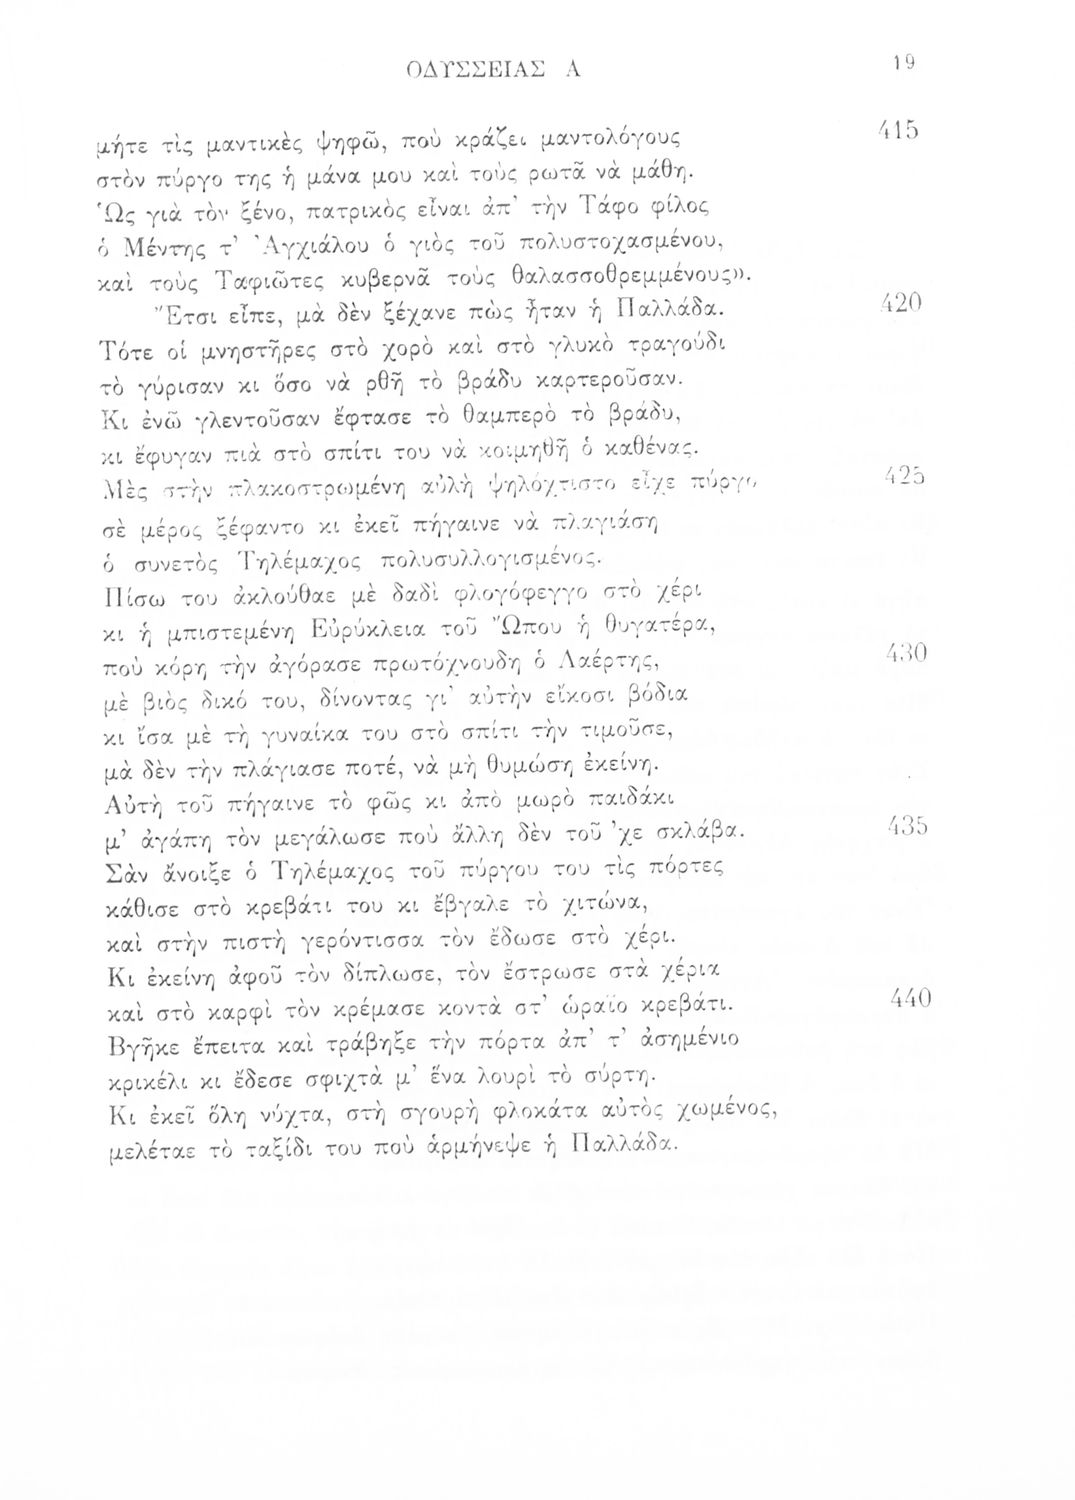 ΟΔΥΣΣΕΙΑΣ Α 19
μήτε τὶς μαντικὲς ψηφῶ, ποὺ κράζει μαντολόγους 415
στὸν πύργο της ἡ μάνα μου καὶ τοὺς ρωτᾶ νὰ μάθη.
Ὡς γιὰ τὸν ξένο, πατρικὸς εἶναι ἀπ' τὴν Τάφο φίλος
ὁ Μέντης τ' Ἀγχιάλου ὁ γιὸς τοῦ πολυστοχασμένου,
καὶ τοὺς Ταφιῶτες κυβερνᾶ τοὺς θαλασσοθρεμμένους».
Ἔτσι εἶπε, μὰ δὲν ξέχανε πὼς ἦταν ἡ Παλλάδα. 420
Τότε οἱ μνηστῆρες στὸ χορὸ καὶ στὸ γλυκὸ τραγούδι
τὸ γύρισαν κι ὅσο νὰ ρθῆ τὸ βράδυ καρτεροῦσαν.
Κι ἐνῶ γλεντοῦσαν ἔφτασε τὸ θαμπερὸ τὸ βράδυ,
κι ἔφυγαν πιὰ στὸ σπίτι του νὰ κοιμηθῆ ὁ καθένας.
Μὲς στὴν πλακοστρωμένη αὐλὴ ψηλόχτιστο εἶχε πύργο 425
σὲ μέρος ξέφαντο κι ἐκεῖ πήγαινε νὰ πλαγιάση
ὁ συνετὸς Τηλέμαχος πολυσυλλογισμένος.
Πίσω του ἀκλούθαε μὲ δαδὶ φλογόφεγγο στὸ χέρι
κι ἡ μπιστεμένη Εὐρύκλεια τοῦ Ὤπου ἡ θυγατέρα,
ποὺ κόρη τὴν ἀγόρασε πρωτόχνουδη ὁ Λαέρτης, 430
μὲ βιὸς δικό του, δίνοντας γι' αὐτὴν εἴκοσι βόδια
κι ἴσα μὲ τὴ γυναίκα του στὸ σπίτι τὴν τιμοῦσε,
μὰ δὲν τὴν πλάγιασε ποτέ, νὰ μὴ θυμώση ἐκείνη.
Αὐτὴ τοῦ πήγαινε τὸ φῶς κι ἀπὸ μωρὸ παιδάκι
μ' ἀγάπη τὸν μεγάλωσε ποὺ ἄλλη δὲν τοῦ 'χε σκλάβα. 435
Σὰν ἄνοιξε ὁ Τηλέμαχος τοῦ πύργου του τὶς πόρτες
κάθισε στὸ κρεβάτι του κι ἔβγαλε τὸ χιτώνα,
καὶ στὴν πιστὴ γερόντισσα τὸν ἔδωσε στὸ χέρι.
Κι ἐκείνη ἀφοῦ τὸν δίπλωσε, τὸν ἔστρωσε στὰ χέρια
καὶ στὸ καρφὶ τὸν κρέμασε κοντὰ στ' ὡραῖο κρεβάτι. 440
Βγῆκε ἔπειτα καὶ τράβηξε τὴν πόρτα ἀπ' τ' ἀσημένιο
κρικέλι κι ἔδεσε σφιχτὰ μ' ἕνα λουρὶ τὸ σύρτη.
Κι ἐκεῖ ὅλη νύχτα, στὴ σγουρὴ φλοκάτα αὐτὸς χωμένος,
μελέταε τὸ ταξίδι του ποὺ ἁρμήνεψε ἡ Παλλάδα.